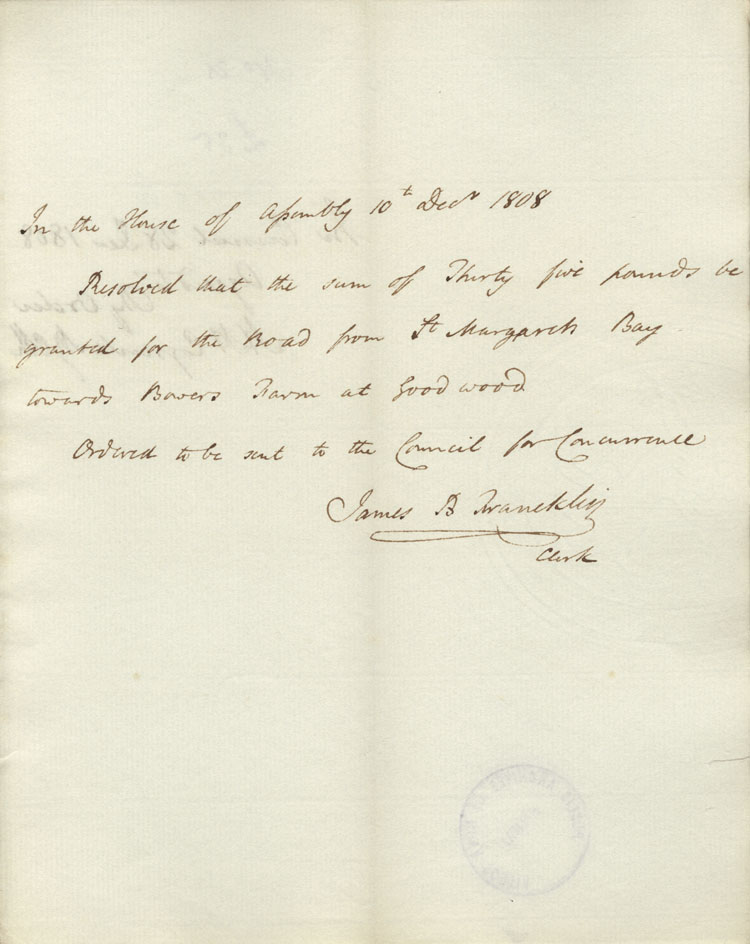 In the House of Assembly 10th Decr 1808
Resolved that the sum of Thirty five pounds be
granted for the Road from St Margarets Bay
towards Bowers Farm at Goodwood
Ordered to be sent to the Council for Concurrence
James B Francklin
Clerk